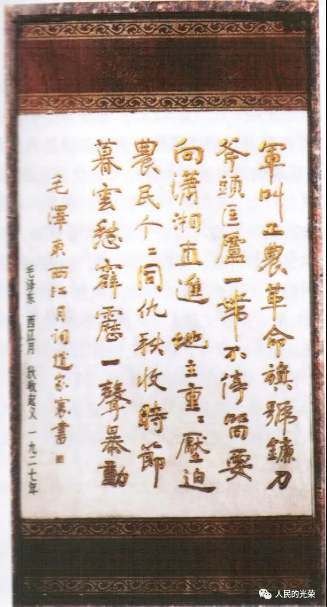 軍叫工農革命旗號鐮刀
斧頭匡廬一帶不停留要
向瀟湘直進地主重〻壓迫
農民个〻同仇秋收時節
暮雲愁霹靂一聲暴動
毛澤東西江月詞書
毛泽东 西江月 秋收起义 一九二七年
人民的光荣